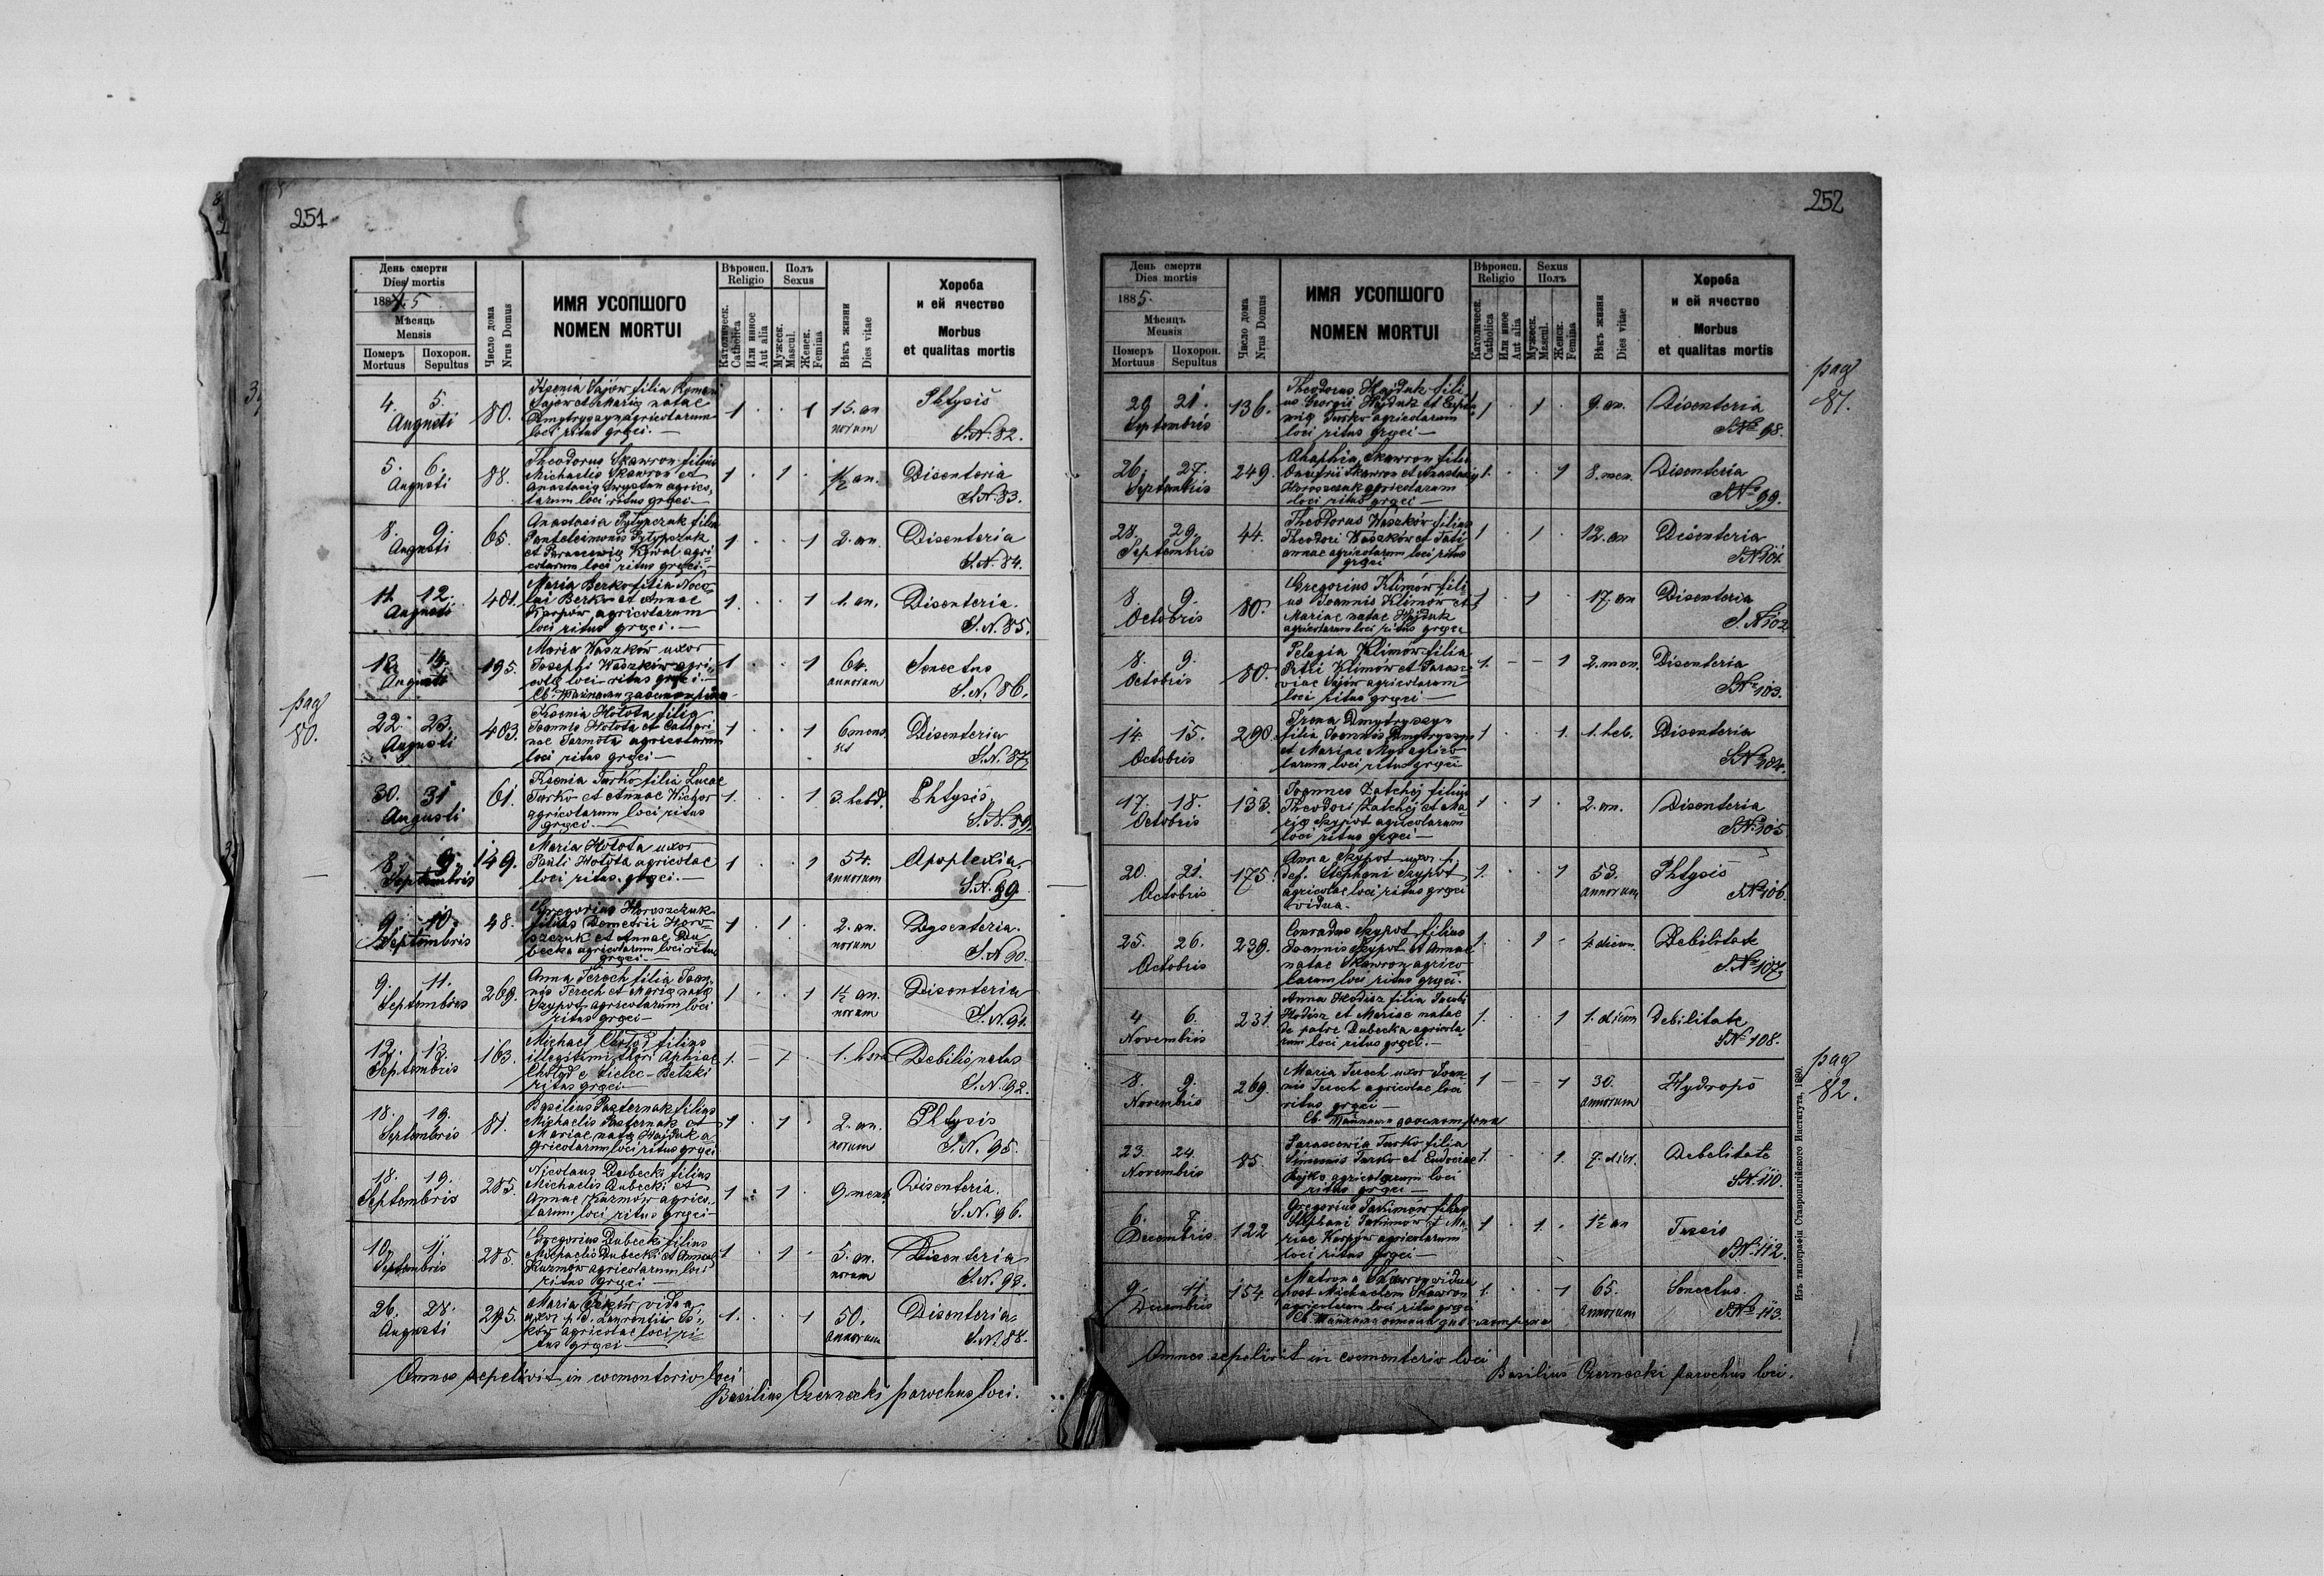 251
День смерти
Dies mortis
1885.
Мѣсяць
Mensis
Померъ Похорон.
Mortuus Sepultus
Число дома
Nrus Domus
ИМЯ УСОПШОГО
NOMEN MORTUI
Вѣроисп.
Religio
Католическ.
Catholica
Или инное
Aut alia
Полъ
Sexus
Мужеск.
Mascul.
Женск.
Femina
Вѣкъ жизни
Dies vitae
Хороба
и ей ячество
Morbus
et qualitas mortis
4. 5. Augusti 80.
Ksenia Sajow filia Romani
Sajow et Maria natae
Dmytryszyn agricolarum
loci ritus graeci.
1 . . 1 15. an
norum
Phtysis
S.N. 82.
5. 6. Augusti 88.
Theodorus Skawron filius
Michaelis Skawron et
Anastasia agrico
larum loci ritus graeci
1 . 1 . 1/2 an.
Disenteria
S.N. 83.
8. 9. Augusti 65.
Anastasia Pylypczuk filia
Panteleimonis Pylypczuk
et Parascewia Kowal agri
colarum loci ritus graeci.
1 . . 1 2. an.
Disenteria
S.N. 84.
11. 12. Augusti 401.
Maria Berko filia Nico
lai Berko et Annae
Karpow agricolarum
loci ritus graeci.
1. . . 1 1. an.
Disenteria.
S.N. 85.
13. 14. Augusti 195.
Maria Waszków uxor
Josephi Waszków agri
colae loci ritus graeci.
1 . . 1 64.
annorum
Senectus
S.N. 86.
pag
80.
22. 23. Augusti 403.
Ksenia Hołota filia
Joannis Hołota et Cathari
nae Jarmola agricolarum
loci ritus graeci
1 . . 1 6 mens
Disenteria
S.N. 87
30. 31 Augusti 61.
Ksenia Turko filia Lucae
Turko et Annae Wichor
agricolarum loci ritus
graeci.
1. . . 1 3. hebd.
Phtysis
8. 9. Septembris 149.
Maria Hołota uxor
Pauli Hołota agricolae
loci ritus graeci.
1 . . 1 54.
annorum
Apoplexia
S.N. 89
9. 10. Septembris 48.
Gregorius Horoszczuk
filius Demetrii Horo
szczuk et Annae Du
becka agricolarum loci ritus
graeci.
1 . 1 . 2. an.
norum
Dysenteria.
S.N. 90.
9. 11. Septembris 269.
Anna Terech filia Joan
nis Terech et Maria nata
Szypot agricolarum loci
ritus graeci
1 . . 1 1 1/2 an.
norum
Disenteria
S.N. 91.
12. 13. Septembris 163.
Michael filius
illegitimi tori Aphiae
e Sielec-Bełzki
ritus graeci
1. 1. hora
Debilis natus
S.N. 92.
18. 19. Septembris 81.
Basilius Pasternak filius
Michaelis Pasternak et
Mariae nata Hajduk a
gricolarum loci ritus graeci
1 . 1 . 2. an.
norum
Phtysis
S.N. 95.
18. 19. Septembris 285.
Nicolaus Dubecki filius
Michaelis Dubecki et
Annae Kuzmów agrico
larum loci ritus graeci
1 . 1 . 9 mens
Disenteria.
S.N. 96.
10. 11. Septembris 285.
Gregorius Dubecki filius
Michaelis Dubecki et Annae
Kuzmów agricolarum loci
ritus graeci
1 . 1 . 5. an.
norum
Disenteria
S.N. 93.
26. 28. Augusti 295.
Maria vidua
uxor p. d. Laurentii
agricolae loci ri
tus graeci
1. . . 1 50.
annorum
Disenteria
S.N. 88.
Omnes sepelivit in coementerio loci
Basilius Czernecki parochus loci.
252
День смерти
Dies mortis
1885.
Мѣсяцъ
Mensis
Померъ Похорон.
Mortuus Sepultus
Число дома
Nrus Domus
ИМЯ УСОПШОГО
NOMEN MORTUI
Вѣроисп.
Religio
Католическ.
Catholica
Или иное
Aut alia
Sexus
Полъ
Мужеск.
Mascul.
Женск.
Femina
Вѣкъ жизни
Dies vitae
Хороба
и ей ячество
Morbus
et qualitas mortis
pag
81.
29 21. Septembris 136.
Theodorus Hajduk fili
us Georgii Hajduk et Euphe
mia Turko agricolarum
loci ritus graeci
1 . 1 . 9. an.
Disenteria
SN 98.
26. 27. Septembris 249.
Ahaphia Skawron filia
Onufrii Skawron et Anastasia
Horoszczuk agricolarum
loci ritus graeci
1. . . 1 8. men.
Disenteria
SN 99.
28. 29. Septembris 44.
Theodorus Waszków filius
Theodori Waszków et Tati
annae agricolarum loci ritus
graeci
1 . 1 . 12. an
Disenteria
SN 101.
8. 9. Octobris 80.
Gregorius Klimów fili
us Joannis Klimów et
Mariae natae Hajduk
agricolarum loci ritus graeci
1 . 1 . 17. an
Disenteria
S.N 102
8. 9. Octobris 80.
Pelagia Klimów filia
Petri Klimów et Parasce
viae Sajów agricolarum
loci ritus graeci
1. – – 1 2. men.
Disenteria
SN 103.
14. 15. Octobris 290.
Irena Dmytryszyn
filia Joannis Dmytryszyn
et Mariae Mys agrico
larum loci ritus graeci
1 . . 1. 1. heb.
Disenteria
SN 104.
17. 18. Octobris 133.
Joannes Zatchej filius
Theodori Zatchej et Ma
ria Szypot agricolarum
loci ritus graeci
1 . 1 . 2. an.
Disenteria
SN 105
20. 21. Octobris 175.
Anna Szypot uxor p.
def. Stephani Szypot
agricolae loci ritus graeci
vidua.
1. . . 1 53.
annorum
Phtysis
SN 106.
25. 26. Octobris 239.
Conradus Szypot filius
Joannis Szypot et Annae
natae Skawron agrico
larum loci ritus graeci.
1. . 1 . 4. dierum.
Debilitate
S.N. 107
4 6. Novembris 231.
Anna Hodisz filia Jacobi
Hodisz et Mariae natae
de patre Dubecka agricola
rum loci ritus graeci.
1. . . 1 1. diem
Debilitate
SN 108.
8. 9. Novembris 269.
Maria Terech uxor Joan
nis Terech agricolae loci
ritus graeci
1 – – 1 30.
annorum
Hydrops
pag
82.
23. 24. Novembris 85.
Parascewia Turko filia
Simeonis Turko et Eudociae
Bojko agricolarum loci
ritus graeci
1. . . 1. 7. dier.
Debelitate
SN 110.
6. 7. Decembris 122
Gregorius Jakimów filius
Stephani Jakimów et Ma
riae Karpów agricolarum
loci ritus graeci
1 . 1. . 1 1/2 an
Tussis
SN. 112.
9. 11. Decembris 154.
Matrona Skawron vidua
post Michaelem Skawron
agricolarum loci ritus graeci
1. . . 1 65.
annorum
Senectus.
SN 113.
Omnes sepelivit in coementerio loci
Basilius Czernecki parochus loci.
Изъ типографіи Ставропигійского Института, 1880.